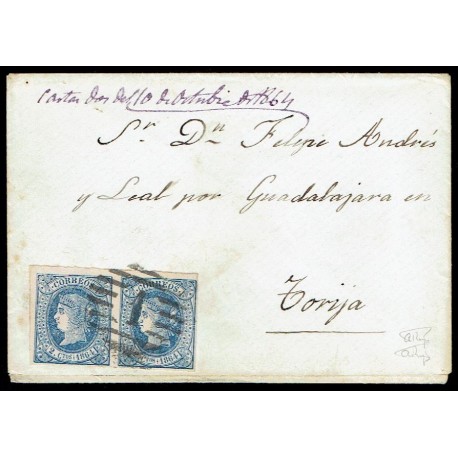 Cartas dos del 10 de Octubre de 1864
Sr. Dn Felipe Andrés
y Leal por Guadalajara en
Torija
CORREOS CORREOS
2 CTOS 1864 2 CTOS 1864